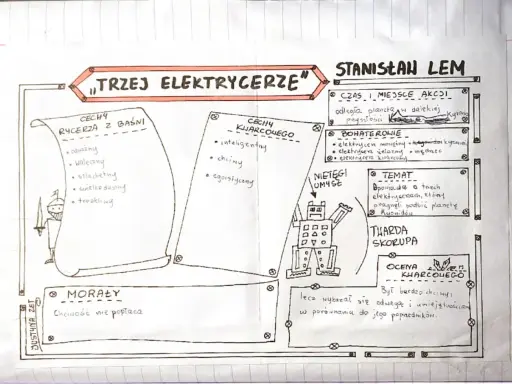 „TRZEJ ELEKTRYCERZE"
STANISŁAW LEM
CECHY
RYCERZA Z BAŚNI
• odważny
• waleczny
• szlachetny
• wielkoduszny
CECHY
KWARCOWEGO
• inteligentny
• chciwy
• egoistyczny
CZAS I MIEJSCE AKCJI
odległa planeta w dalekiej
przyszłości
BOHATEROWIE
• elektrycerz mosiężny
• elektrycerz żelazny • mędrzec
• elektrycerz kwarcowy
TEMAT
Opowiada o trzech
elektrycerzach, którzy
pragnęli podbić planetę
NIETĘGI
UMYSŁ
TWARDA
SKORUPA
OCENA
KWARCOWEGO
Był bardzo chciwy,
lecz wykazał się odwagą i umiejętnościami
w porównaniu do jego poprzedników.
MORAŁY
Chciwość nie popłaca